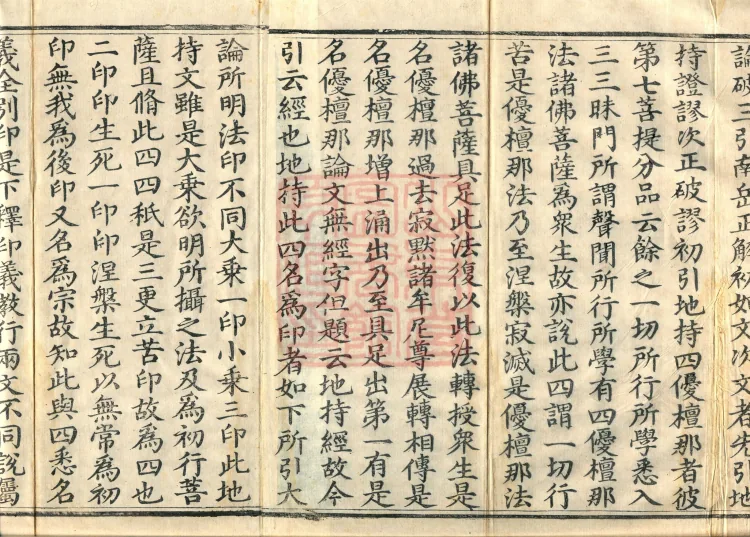 論破三引南岳正解初如文次文者先引地
持證謬次正破謬初引地持四優檀那者彼
第七菩提分品云餘之一切所行所學悉入
三三昧門所謂聲聞所行所學有四優檀那
法諸佛菩薩爲衆生故亦說此四謂一切行
苦是優檀那法乃至涅槃寂滅是優檀那法
諸佛菩薩具足此法復以此法轉授衆生是
名優檀那過去寂默諸牟尼尊展轉相傳是
名優檀那增上涌出乃至具足出第一有是
名優檀那論文無經字但題云地持經故今
引云經也地持此四名爲印者如下所引大
論所明法印不同大乘一印小乘三印此地
持文雖是大乘欲明所攝之法及爲初行菩
薩且脩此四四秖是三更立苦印故爲四也
二印印生死一印印涅槃生死以無常爲初
印無我爲後印又名爲宗故知此與四悉名
義全別印是下釋印義教行兩文不同說屬